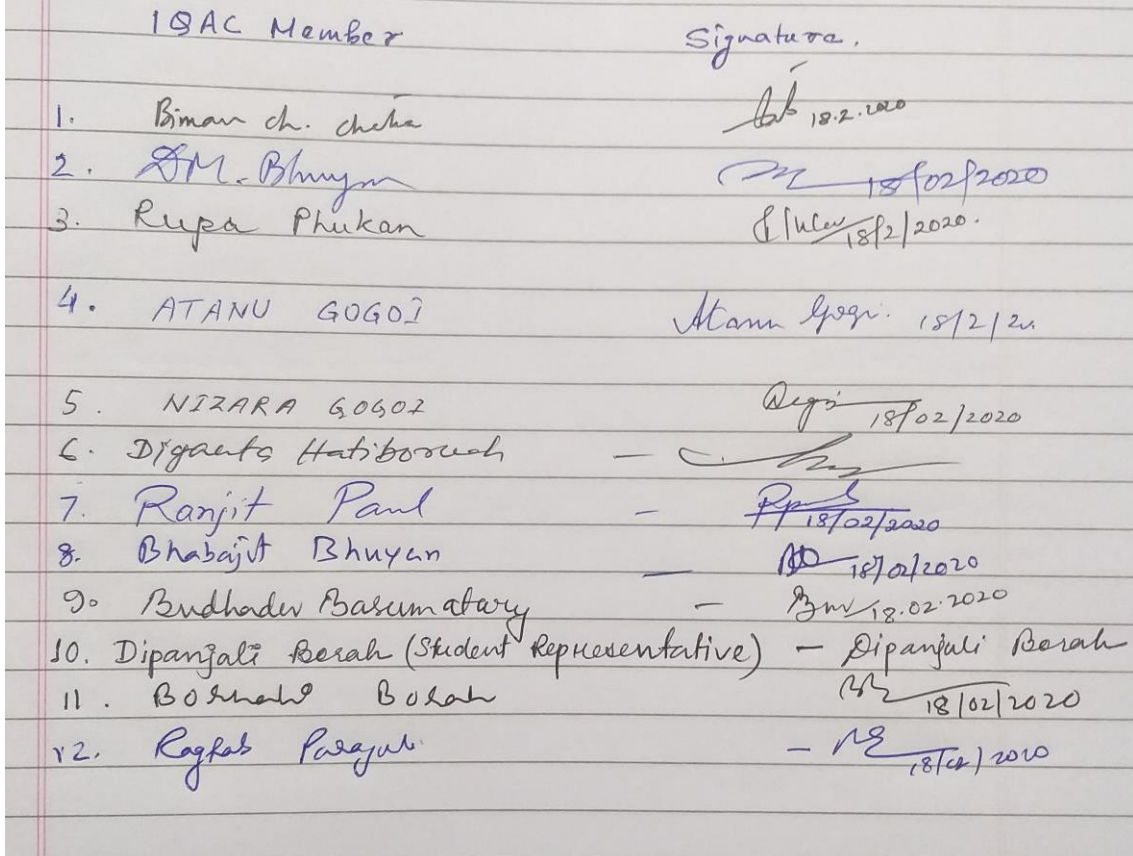 IQAC Member Signature.
1. Biman ch. cheha 18.2.2020
2. DM. Bhuyan 18/02/2020
3. Rupa Phukan 18/2/2020.
4. ATANU GOGOI Atanu Gogoi. 18/2/20
5. NIZARA GOGOI 18/02/2020
6. Diganta Hatiboruah -
7. Ranjit Paul - 18/02/2020
8. Bhabajit Bhuyan - 18/02/2020
9. Budhadev Basumatary - 18.02.2020
10. Dipanjali Borah (Student Representative) - Dipanjali Borah
11. Borah 18/02/2020
12. Raghab Parajuli - 18/02/2020